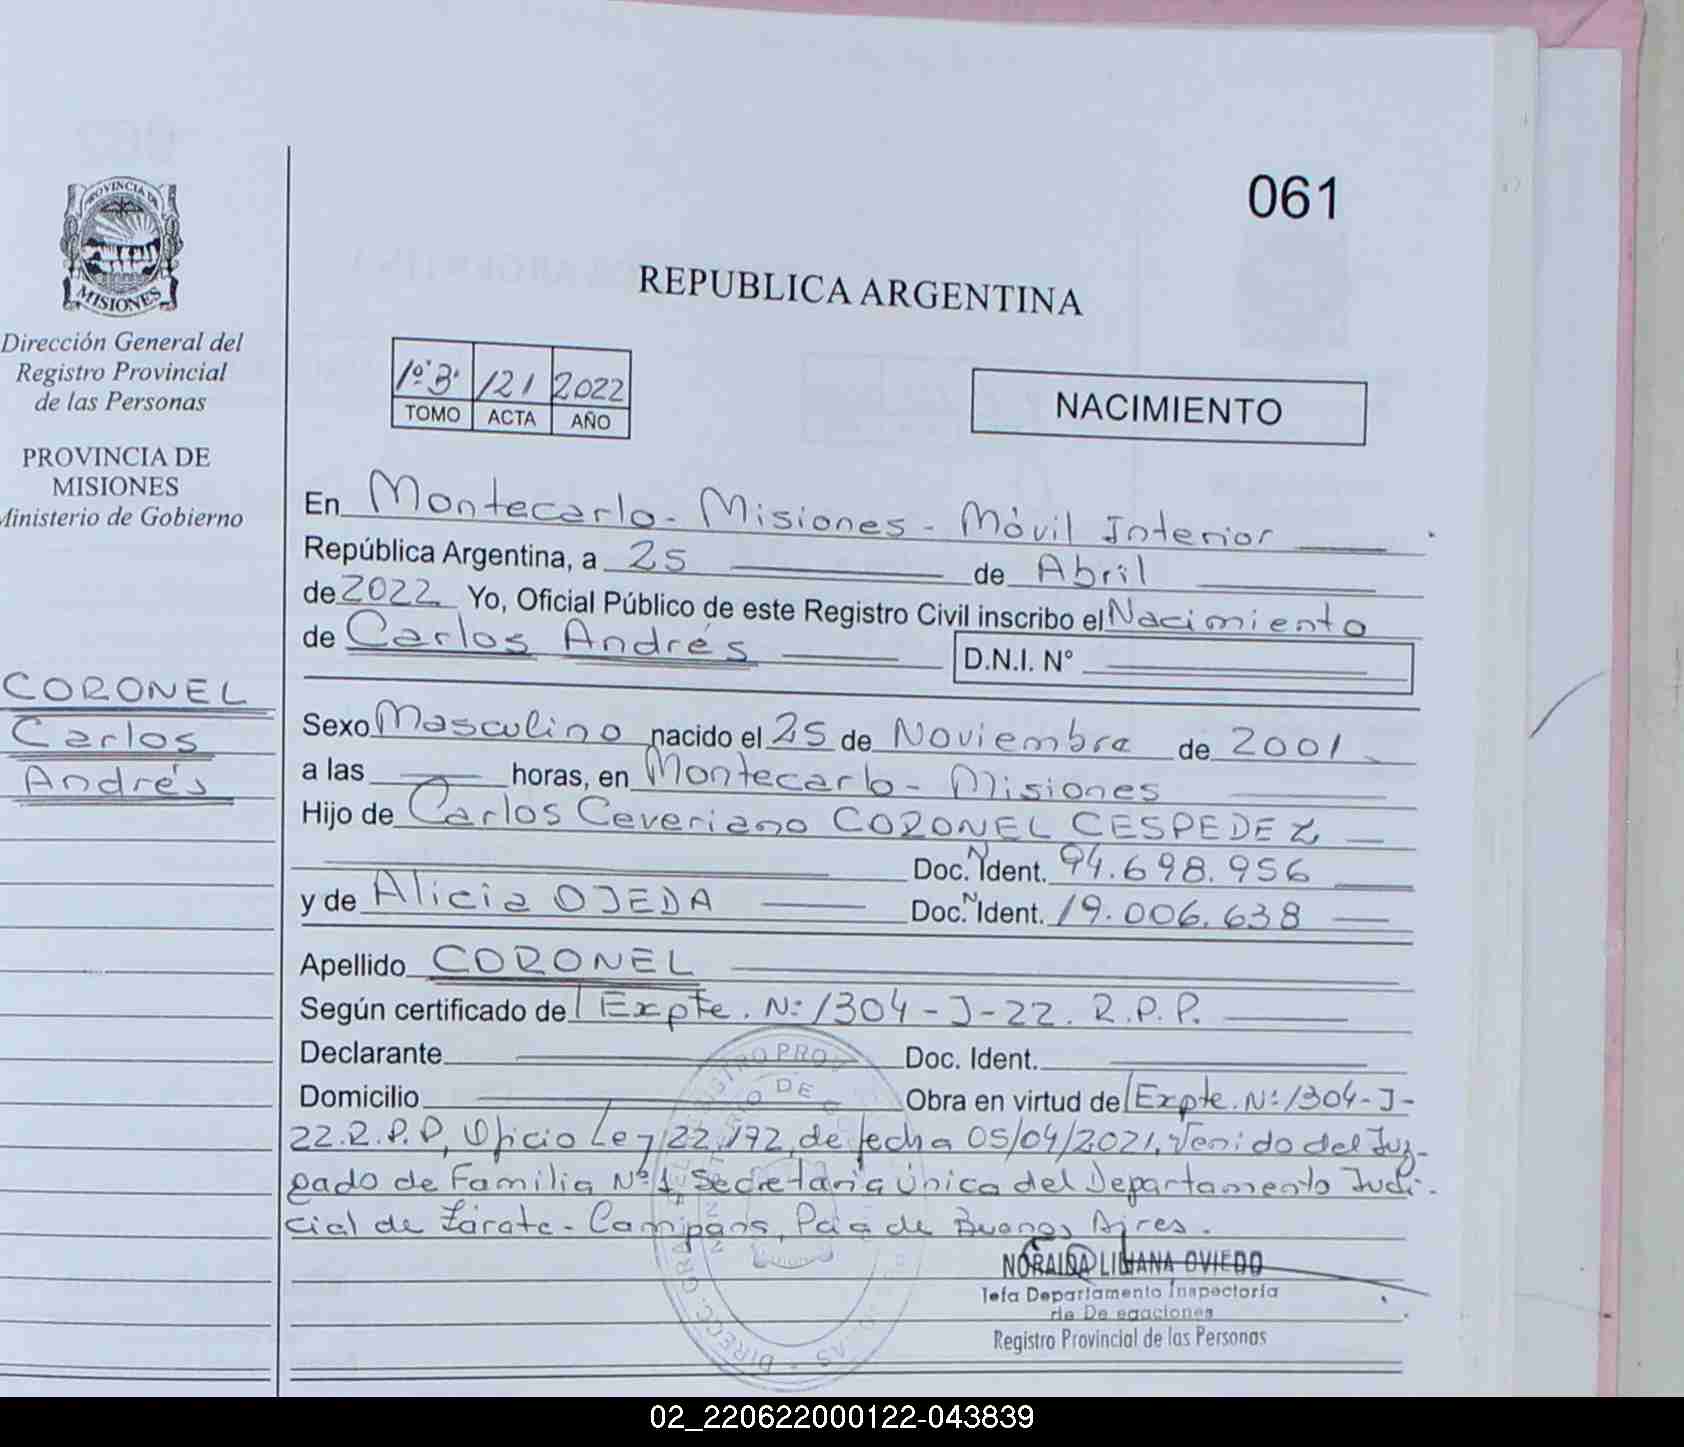 061
REPUBLICA ARGENTINA
PROVINCIA DE
MISIONES
Dirección General del
Registro Provincial
de las Personas
PROVINCIA DE
MISIONES
Ministerio de Gobierno
1º B' 121 2022
TOMO ACTA AÑO
NACIMIENTO
En Montecarlo - Misiones - Móvil Interior
República Argentina, a 25 de Abril
de 2022 Yo, Oficial Público de este Registro Civil inscribo el Nacimiento
de Carlos Andrés D.N.I. N°
CORONEL
Carlos
Andrés
Sexo Masculino nacido el 25 de Noviembre de 2001
a las horas, en Montecarlo - Misiones
Hijo de Carlos Ceveriano CORONEL CESPEDEZ
Doc. N Ident. 94.698.956
y de Alicia OJEDA Doc. N Ident. 19.006.638
Apellido CORONEL
Según certificado de Expte. Nº 1304-J-22. R.P.P.
Declarante Doc. Ident.
Domicilio Obra en virtud de Expte. Nº 1304-J-
22.R.P.P, Oficio Ley 22.172, de fecha 05/04/2021, Venido del Juz-
gado de Familia Nº 1 Secretaria única del Departamento Judi-
cial de Zárate - Campana, Pcia de Buenos Aires.
NORAIDA LILIANA OVIEDO
Jefa Departamento Inspectoría
de Delegaciones
Registro Provincial de las Personas
02_220622000122-043839